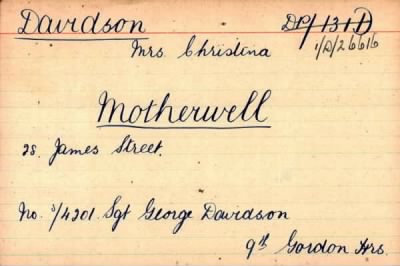 Davidson DP/131D
Mrs. Christina 1/D/26616
Motherwell
28. James Street.
No. S/4201. Sgt George Davidson
9th Gordon Hrs.